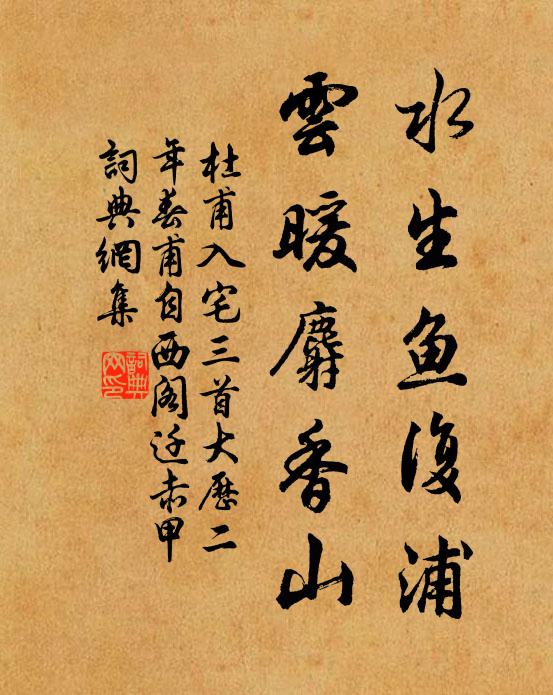 水生魚復浦
雲暖麝香山
杜甫入宅三首大歷二
年春甫自西阁迁赤甲
詞典網集
詞典网印